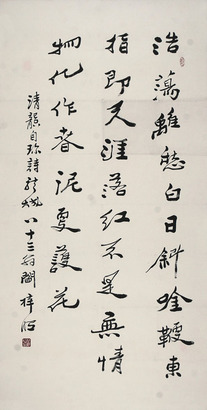 浩蕩離愁白日斜吟鞭東
指即天涯落紅不是無情
物化作春泥更護花
清龔自珍詩 八十三翁閻梓昭